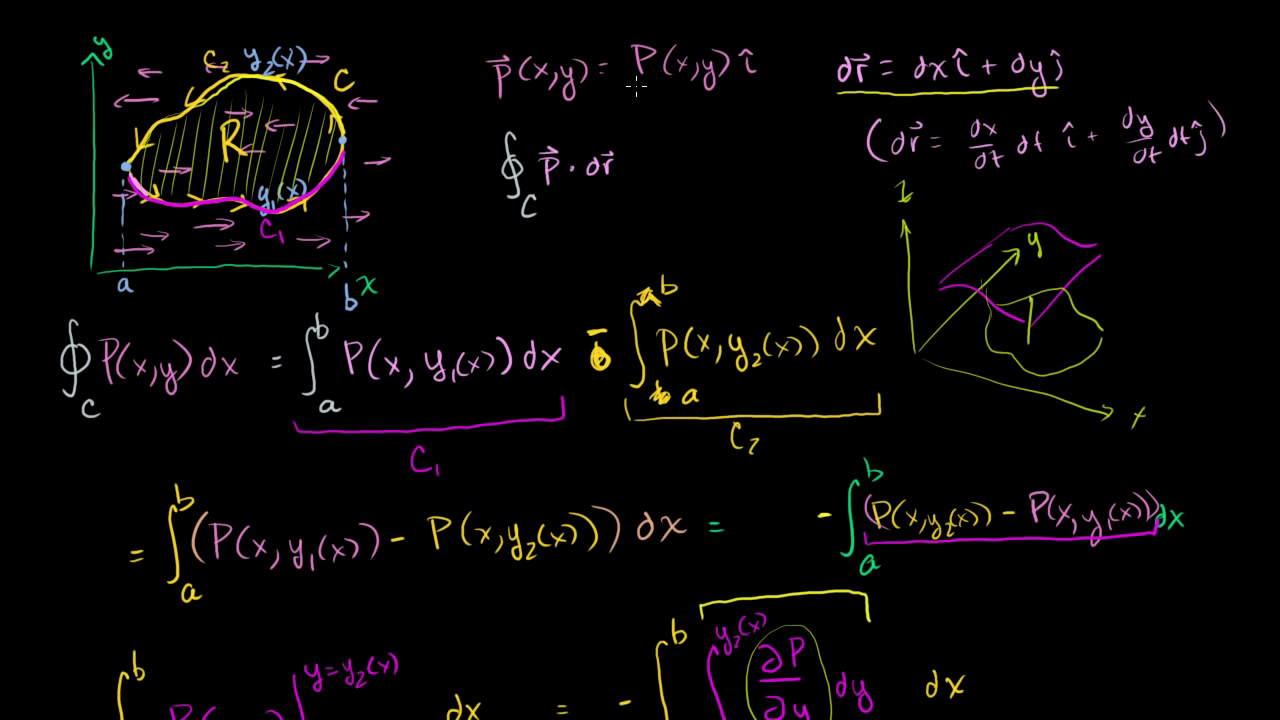 y
C₂ y₂(x) C
R
y₁(x)
C₁
a b x
P⃗(x,y) = P(x,y) î
dr⃗ = dx î + dy ĵ
∮_C P⃗ · dr⃗
(dr⃗ = dx/dt dt î + dy/dt dt ĵ)
z
y
x
∮_C P(x,y) dx = ∫_a^b P(x, y₁(x)) dx - ∫_a^b P(x, y₂(x)) dx
C₁ C₂
= ∫_a^b (P(x, y₁(x)) - P(x, y₂(x))) dx = - ∫_a^b (P(x, y₂(x)) - P(x, y₁(x))) dx
b y=y₂(x) dx = - ∫^b ∫^{y₂(x)} ∂P/∂y dy dx